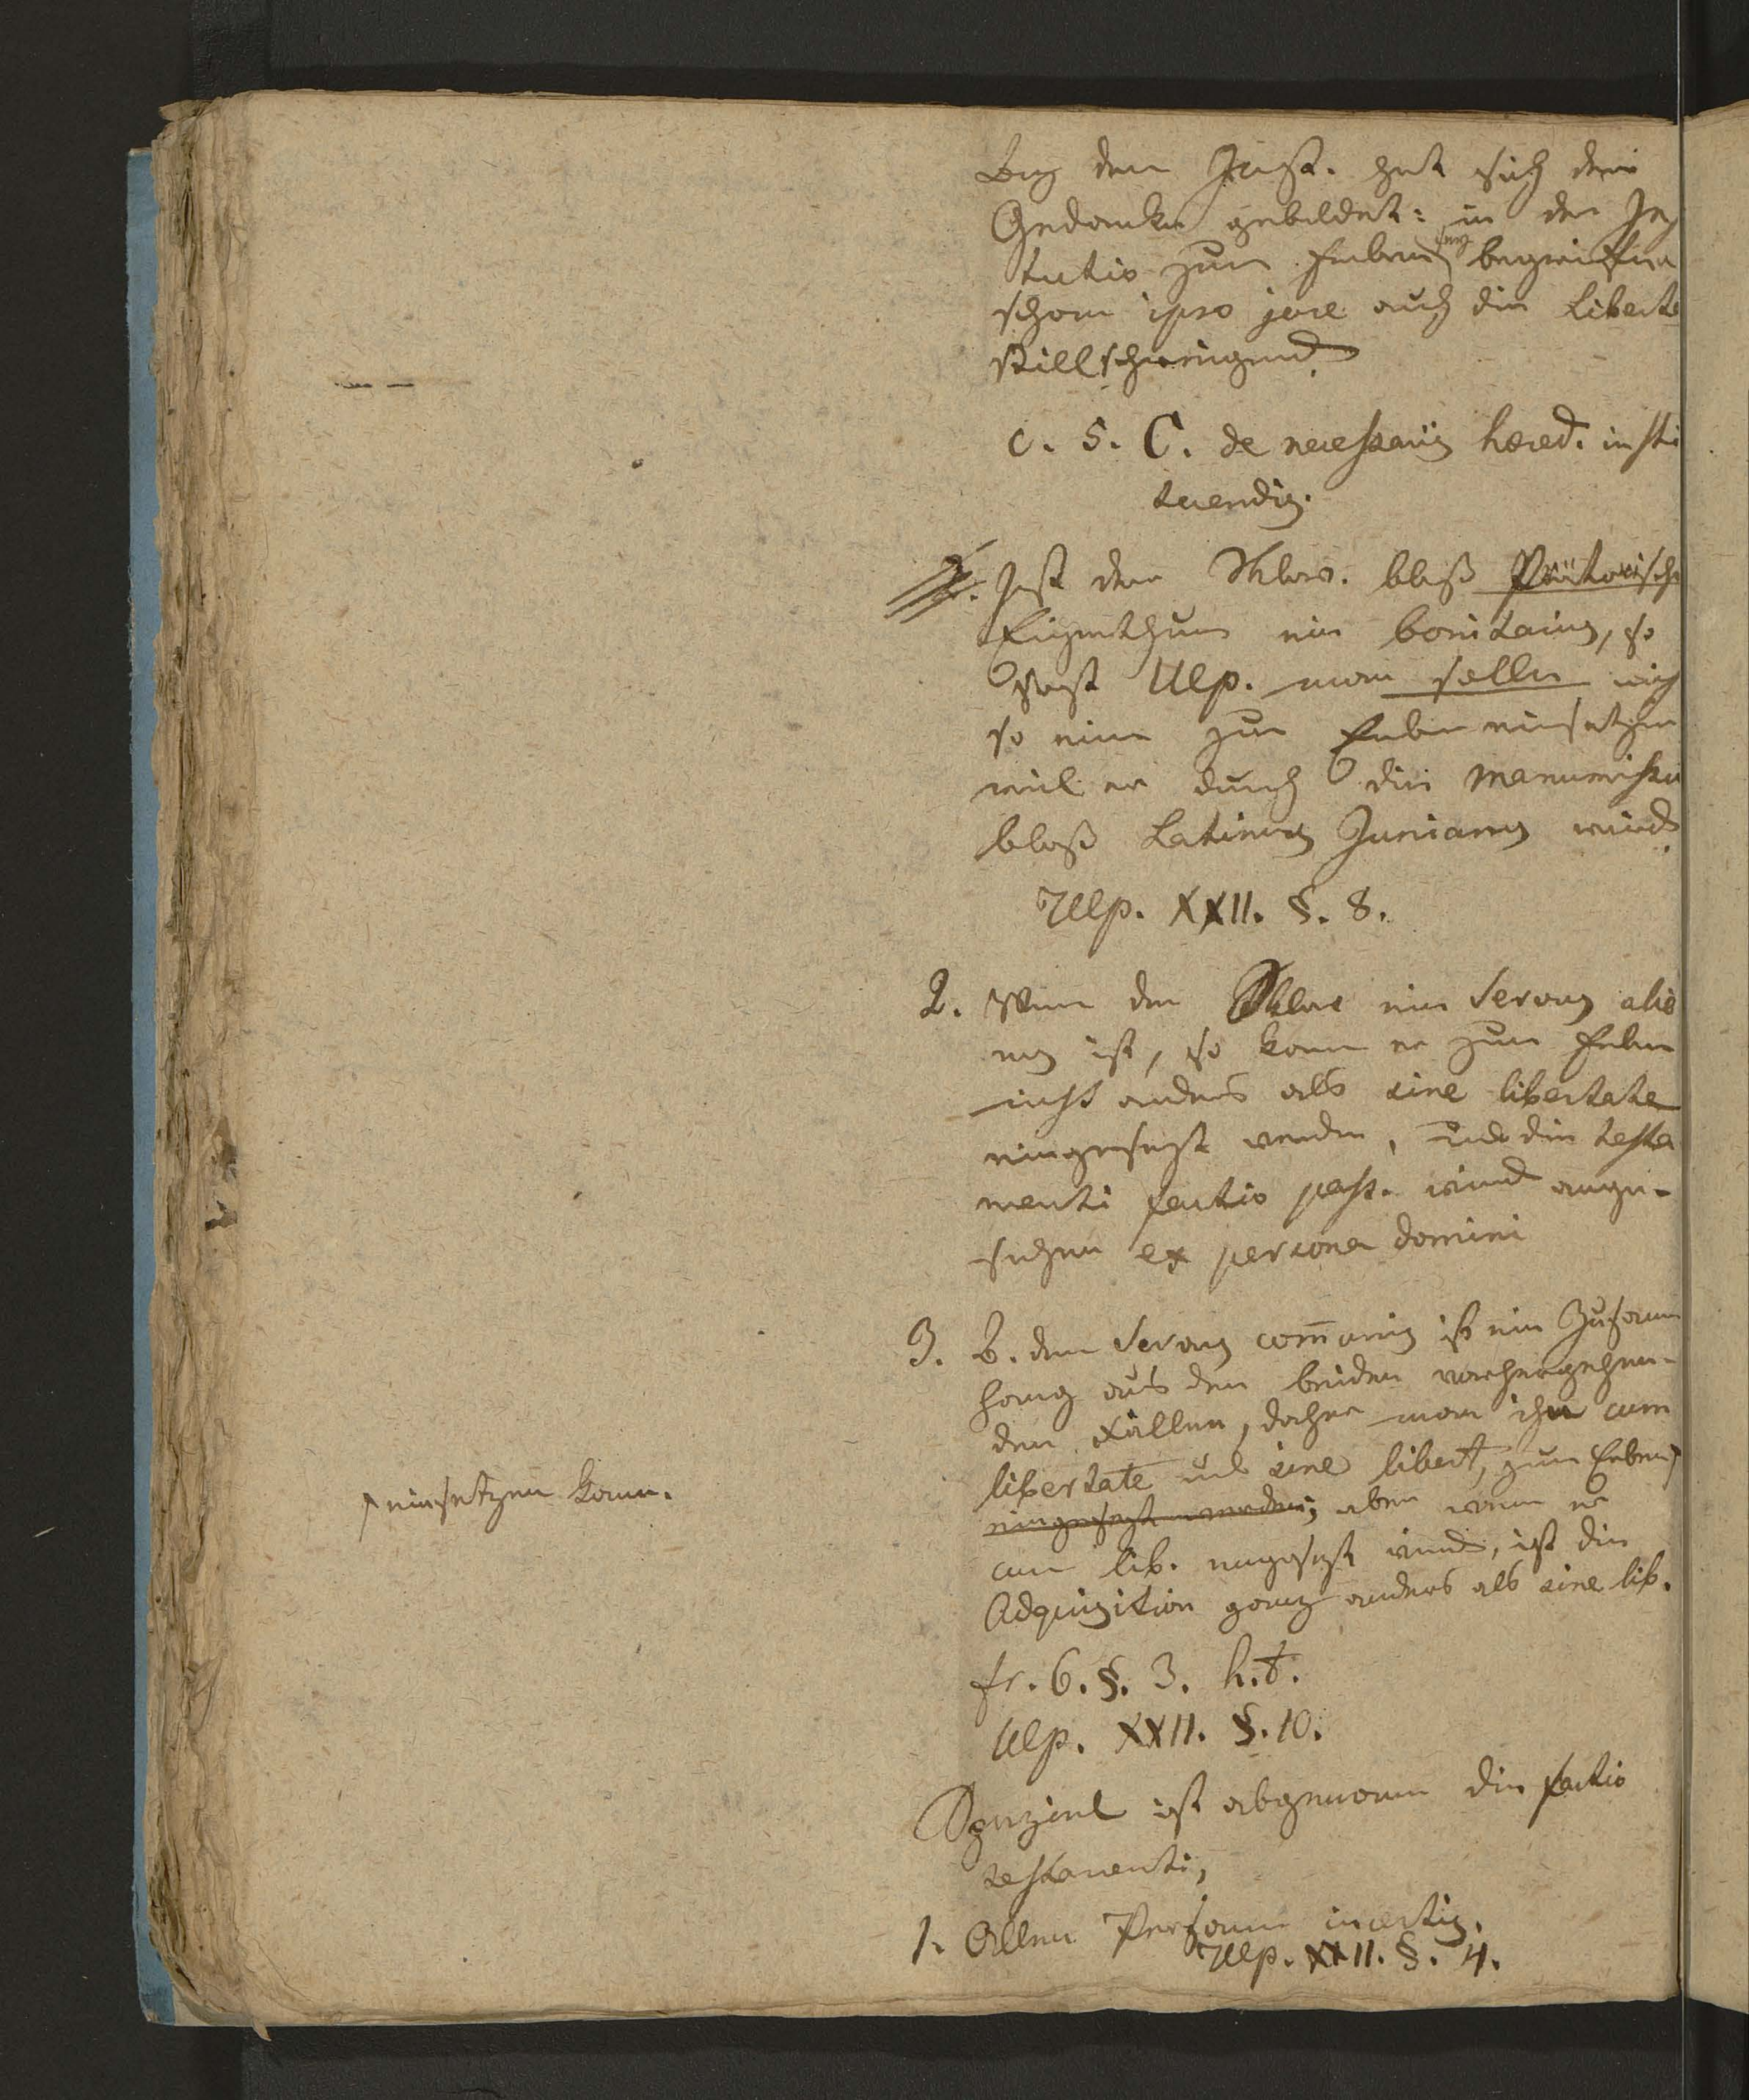 Bey dem Just. hat sich der
Gedanke gebildet: in der In
tutio zum Erben sey begriffen
schon ipso jure auch die Liberta
stillschweigend.
c. 5. C. de necessariis hæred. insti
tuendis.
Ist der Sklav. bloß Prätorisch
Eigenthum ein bonitarius, so
sagt Ulp. man solle nicht
so einen zum Erben einsetzen
weil er durch die Manumissio
bloß Latinus Junianus wird.
Ulp. XXII. §. 8.
2. Wenn der Sklave ein Servus alie
nus ist, so kann er zum Erben
nicht anders als sine libertate
eingesezt werden, und die testa
menti factio pass. wird ange-
sehen ex persona domini
3. B. dem Servus com̅unis ist ein Zusam̅
hang aus den beiden vorhergehen-
den Fällen, daher man ihn cum
libertate und sine libert, zum Erben
einsetzen kann.
eingesezt werden; aber wenn er
cum lib. eingesezt wird, ist die
Adquisition ganz anders als sine lib.
fr. 6. §. 3. h.t.
Ulp. XXII. §. 10.
Speziel ist abgenommen die factio
testamenti,
1. Allen Personis incertis.
Ulp. XXII. §. 4.